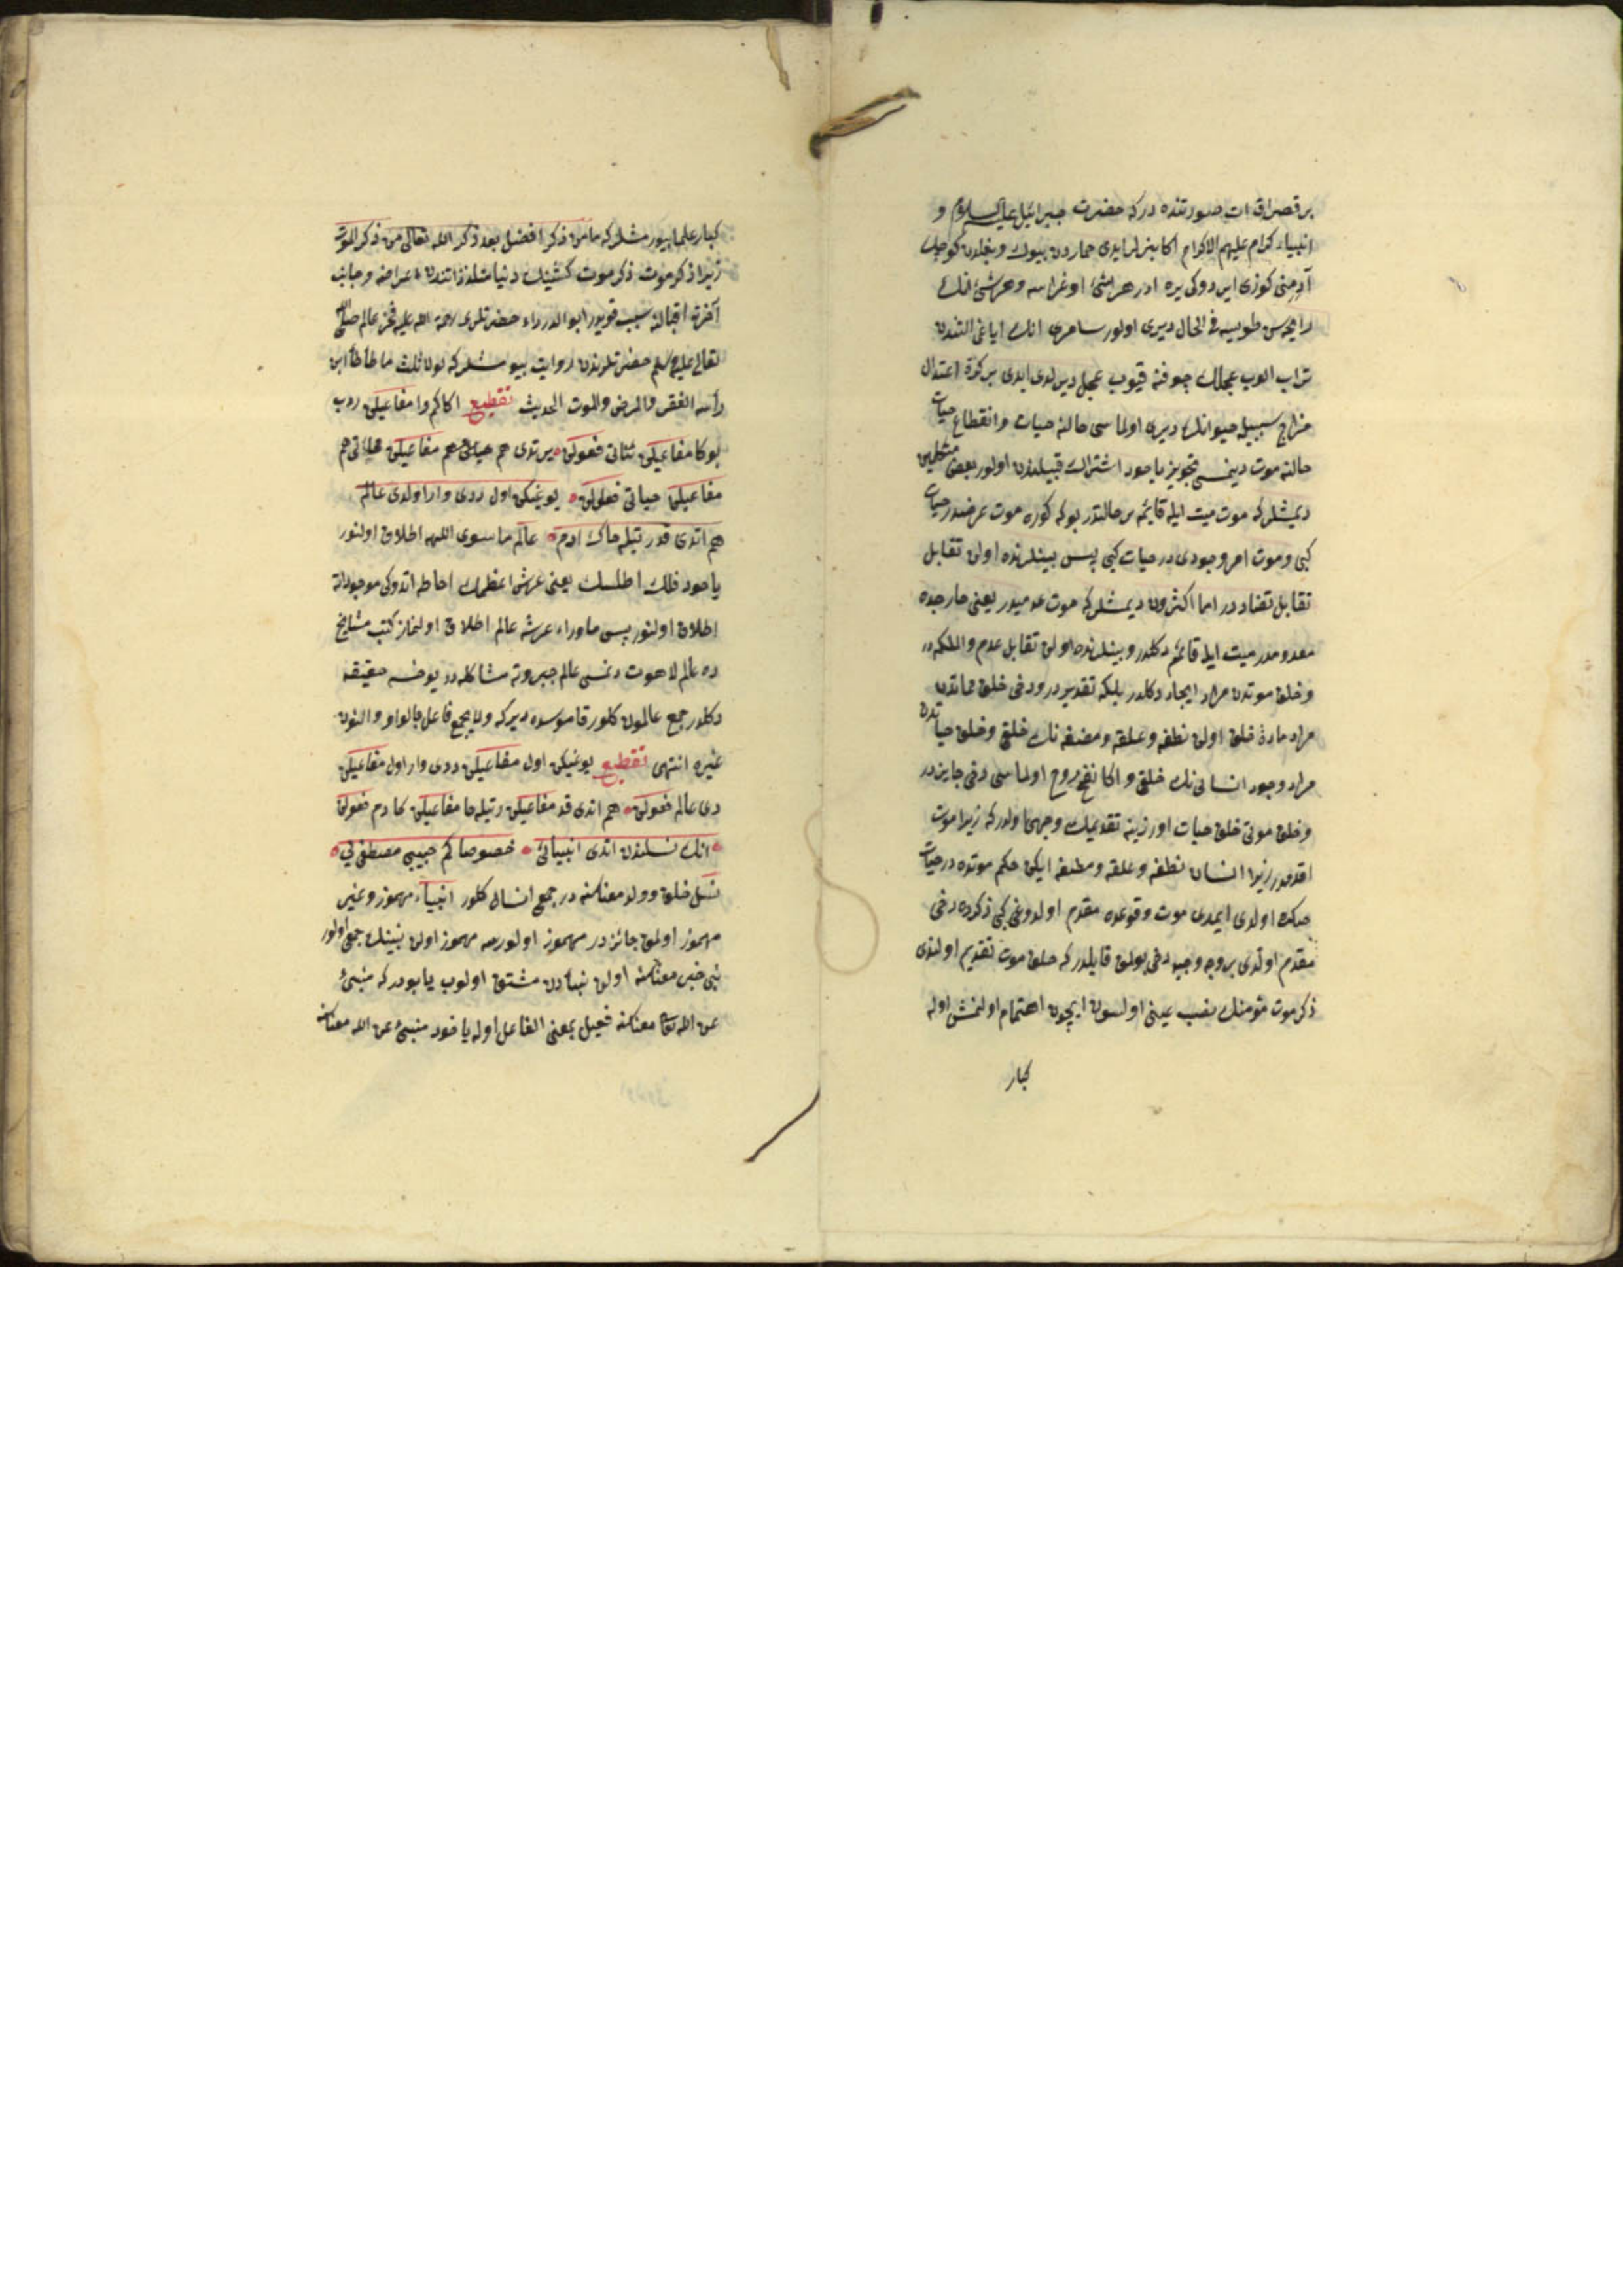 بر قصراق ات صورتنده در که حضرت جبرائیل علیه السلام و
انبیاء کرام علیهم الاکرام اکا بنرلر ایدی حماردن بیوک و بغلدن کوچک
آدمنی کوزی ایردوکی یره ادر هر شئ اوغراسه و هر شئ انک
رایحه سن طویسه فی الحال دیری اولور سامری انک ایاغی التندن
تراب الوب عجلک جوفنه قیوب عجل دیرلدی ایدی بر کره اعتدال
مزاج سببیله حیوانک دیری اولماسی حالنه حیات و انقطاع حیات
حالنه موت دینمسی تجویز یاخود اشتراک قبیلندن اولور بعض متکلمین
دیمشلر که موت میت ایله قایمه بر حالتدر بو که کوره موت عرضدر حیات
کبی و موت امر وجودی در حیات کبی پس بینلرنده اولن تقابل
تقابل تضاددر اما اکثرون دیمشلر که موت عدمیدر یعنی خارجده
معدومدر میت ایله قائم دکلدر و بینلرنده اولن تقابل عدم و الملکه در
و خلق موتدن مراد ایجاد دکلدر بلکه تقدیردر ودخی خلق مماتدن
مراد ماده خلق اولن نطفه و علقه و مضغه نک خلقی و خلق حیاتدن
مراد وجود انسانی نک خلقی و اکا نفخ روح اولماسی دخی جایزدر
و خلق موتی خلق حیات اوزرینه تقدیمک وجهی اولدر که زیرا موت
اقدمدر زیرا انسان نطفه و علقه و مضغه ایکن حکم موتده در حیات
صکره اولدی ایمدی موت وقوعده مقدم اولدوغی کبی ذکرده دخی
مقدم اولدی بر وجه وجیه دخی بولمق قابلدر که خلق موت تقدیم اولندی
ذکر موت مؤمنک نصب عینی اولسون ایچون اهتمام اولنمش اوله
کبار
کبار علما بیورمشلر که ما من ذکر افضل بعد ذکر الله تعالی من ذکر الموت
زیرا ذکر موت ذکر موت کشینک دنیا متلذذاتندن اعراضنه و جانب
آخرته اقبالنه سبب قویدر ابو الدرداء حضرتلری رحمة الله علیه فخر عالم صلی الله
تعالی علیه وسلم حضرتلرندن روایت بیورمشلر که لولا ثلث ما طأطأ ابن
رأسه الفقر والمرض والموت الحدیث تقطیع اکاکم وا مفاعیلن روب
بوکا مفاعیلن ثنائی فعولن یرتدی هم حیاتی هم مفاعیلن مماتی هم
مفاعیلن حیاتی فعولن یوغیکن اول ددی وار اولدی عالم
هم اتدی قدرتیله خاک ادم عالم ما سوی اللهه اطلاق اولنور
یاخود فلک اطلسک یعنی عرش اعظمک احاطه اتدوکی موجوداته
اطلاق اولنور پس ماوراء عرشه عالم اطلاق اولنماز کتب مشایخ
ده عالم لاهوت دنمسی عالم جبروته مشاکله در یوخسه حقیقه
دکلدر جمع عالمون کلور قاموسده دیر که ولا یجمع فاعل بالواو والنون
غیره انتهی تقطیع یوغیکن اول مفاعیلن ددی وار اول مفاعیلن
دی عالم فعولن هم اتدی قد مفاعیلن رتیله خا مفاعیلن کادم فعولن
انک نسلندن اتدی انبیائی خصوصا کم حبیبی مصطفی یی
نسل خلق و ولد معناسنه در جمعی انسال کلور انبیاء مهموز و غیر
مهموز اولمق جائزدر مهموز اولورسه مهموز اولن نبینک جمعی اولور
نبی خبر معناسنه اولن نبأدن مشتق اولوب یا بودر که منبئ
عن الله تعالی معناسنه فعیل بمعنی الفاعل اوله یا خود منبئ عن الله معناسنه